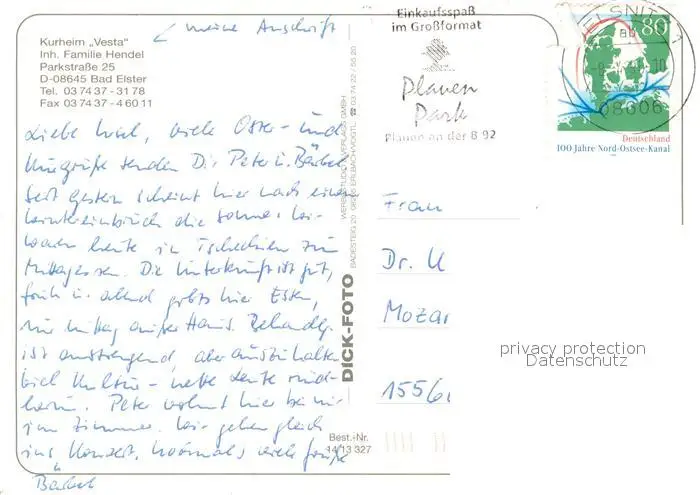 meine Anschrift
Kurheim „Vesta"
Inh. Familie Hendel
Parkstraße 25
D-08645 Bad Elster
Tel. 03 74 37 - 31 78
Fax 03 74 37 - 4 60 11
Einkaufsspaß
im Großformat
Plauen
Park
Plauen an der B 92
OELSNITZ
08606
80
Deutschland
100 Jahre Nord-Ostsee-Kanal
Liebe viele Oster- und
Kurgrüße senden Dir Peter u. Bärbel
Seit gestern scheint hier nach einem
Wintereinbruch die Sonne. Wir
waren heute in Tschechien zum
Mittagessen. Die Unterkunft ist gut,
früh u. abend gibts hier Essen,
nur mittag außer Haus. Behandlg.
ist anstrengend, aber auszuhalten
viel Kultur - nette Leute rund-
herum. Peter wohnt hier bei mir
im Zimmer. Wir gehen gleich
ins Konzert. Nochmals viele Grüße
Bärbel
DICK-FOTO
BADESTEIG 20 · 08265 ERLBACH/VOGTL. ☎ 03 74 22 / 65 20
Best.-Nr.
14 13 327
Frau
Dr. U
Mozar
1556
privacy protection
Datenschutz